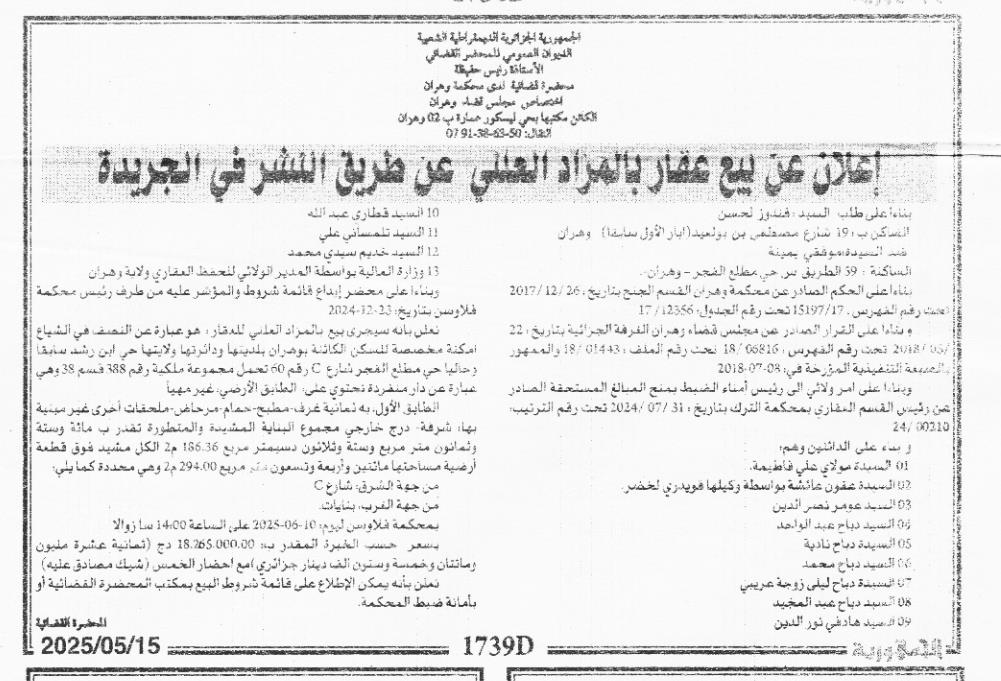 الجمهورية الجزائرية الديمقراطية الشعبية
الديوان العمومي للمحضر القضائي
الأستاذة رئيس حفيظة
محضرة قضائية لدى محكمة وهران
اختصاص مجلس قضاء وهران
الكائن مكتبها بحي ليسكور عمارة ب 02 وهران
النقال: 50-63-38-0791
إعلان عن بيع عقار بالمزاد العلني عن طريق النشر في الجريدة
بناءا على طلب السيد: قندوز لحسن
الساكن ب: 19 شارع مصطفى بن بولعيد (ايار الأول سابقا) وهران
ضد السيدة: موفقي يمينة
الساكنة: 59 الطريق س حي مطلع الفجر - وهران-.
بناءا على الحكم الصادر عن محكمة وهران القسم الجنح بتاريخ: 26/12/2017
تحت رقم الفهرس: 15197/17 تحت رقم الجدول: 12356/17
و بناءا على القرار الصادر عن مجلس قضاء وهران الغرفة الجزائية بتاريخ: 22
/05/2018 تحت رقم الفهرس: 06816/18 تحت رقم الملف: 01443/18 والممهور
بالصيغة التنفيذية المؤرخة في: 08-07-2018
وبناءا على امر ولائي الى رئيس أمناء الضبط بمنح المبالغ المستحقة الصادر
عن رئيس القسم العقاري بمحكمة الترك بتاريخ: 31/07/2024 تحت رقم الترتيب:
24/00210
و بناء على الدائنين وهم:
01 السيدة مولاي علي فاطيمة.
02 السيدة عقون عائشة بواسطة وكيلها قويدري لخضر.
03 السيد عومر نصر الدين
04 السيد دباح عبد الواحد
05 السيدة دباح نادية
06 السيد دباح محمد
07 السيدة دباح ليلى زوجة عريبي
08 السيد دباح عبد المجيد
09 السيد هادفي نور الدين
10 السيد قطاري عبد الله
11 السيد تلمساني علي
12 السيد خديم سيدي محمد
13 وزارة المالية بواسطة المدير الولائي للحفظ العقاري ولاية وهران
وبناءا على محضر إيداع قائمة شروط والمؤشر عليه من طرف رئيس محكمة
فلاوسن بتاريخ: 23-12-2024
تعلن بأنه سيجرى بيع بالمزاد العلني للعقار: هو عبارة عن النصف في الشياع
امكنة مخصصة للسكن الكائنة بوهران بلديتها ودائرتها ولايتها حي ابن رشد سابقا
وحاليا حي مطلع الفجر شارع C رقم 60 تحمل مجموعة ملكية رقم 388 قسم 38 وهي
عبارة عن دار منفردة تحتوي على: الطابق الأرضي: غير مهيأ
الطابق الأول: به ثمانية غرف-مطبخ-حمام-مرحاض-ملحقات أخرى غير مبنية
بها: شرفة- درج خارجي مجموع البناية المشيدة والمتطورة تقدر ب مائة وستة
وثمانون متر مربع وستة وثلاثون دسيمتر مربع 186.36 م2 الكل مشيد فوق قطعة
أرضية مساحتها مائتين وأربعة وتسعون متر مربع 294.00 م2 وهي محددة كما يلي:
من جهة الشرق: شارع C
من جهة الغرب: بنايات.
بمحكمة فلاوسن ليوم: 10-06-2025 على الساعة 14:00 سا زوالا
بسعر حسب الخبرة المقدر بـ: 18.265.000.00 دج (ثمانية عشرة مليون
ومائتان وخمسة وستون الف دينار جزائري) مع احضار الخمس (شيك مصادق عليه)
تعلن بأنه يمكن الإطلاع على قائمة شروط البيع بمكتب المحضرة القضائية أو
بأمانة ضبط المحكمة.
المحضرة القضائية
2025/05/15
1739D
الجمهورية